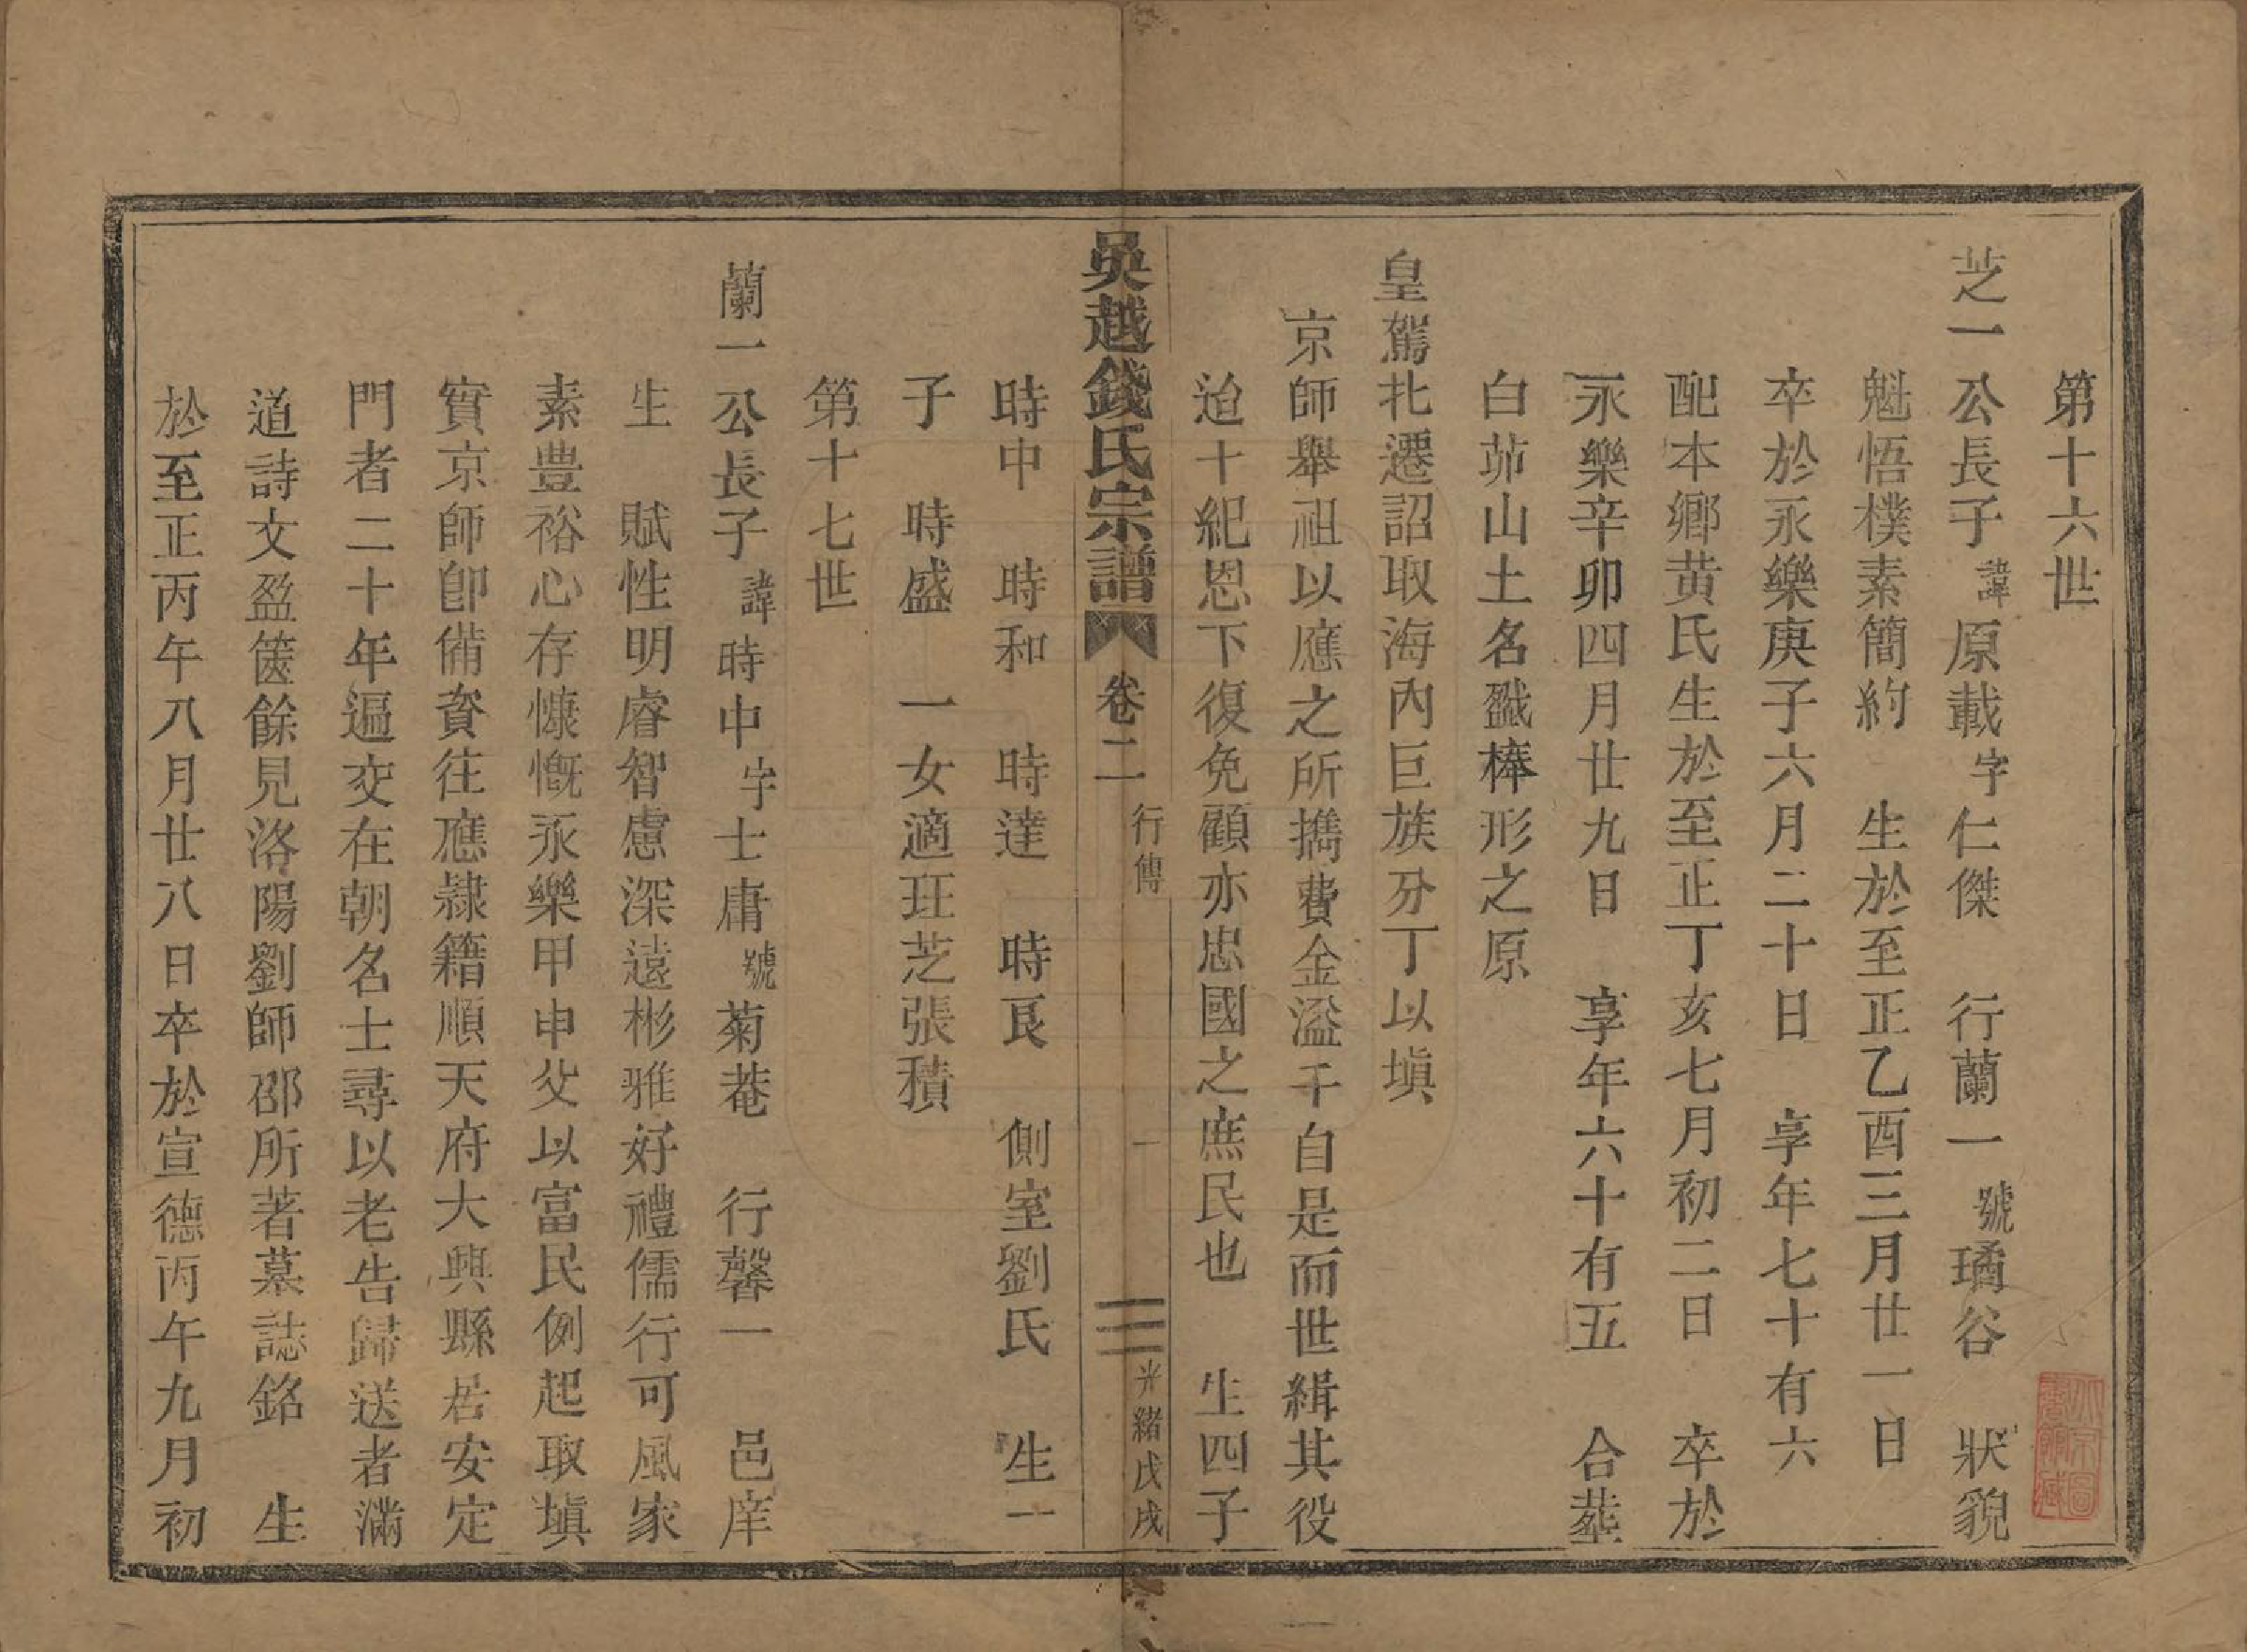 第十六世
芝一公長子諱原載字仁傑　行蘭一號璚谷　狀貌
魁悟樸素簡約　生於至正乙酉三月廿一日
卒於永樂庚子六月二十日　享年七十有六
配本鄉黄氏生於至正丁亥七月初二日　卒於
永樂辛卯四月廿九日　享年六十有五　合塟
白茆山土名棒形之原
皇駕北遷詔取海內巨族分丁以塡
京師舉祖以應之所擕費金溢千自是而世緝其役
迨十紀恩下復免顧亦忠國之庶民也　生四子
吳越錢氏宗譜　卷二　行傳　一　光緒戊戌
時中　時和　時達　時良　側室劉氏　生一
子　時盛　一女適玨芝張積
第十七世
蘭一公長子諱時中字士庸號菊菴　行馨一　邑庠
生　賦性明睿智慮深遠彬雅好禮儒行可風家
素豊裕心存慷慨永樂甲申父以富民例起取塡
實京師卽備資往應隷籍順天府大興縣居安定
門者二十年遍交在朝名士尋以老告歸送者滿
道詩文盈篋餘見洛陽劉師邵所著墓誌銘　生
於至正丙午八月廿八日卒於宣德丙午九月初